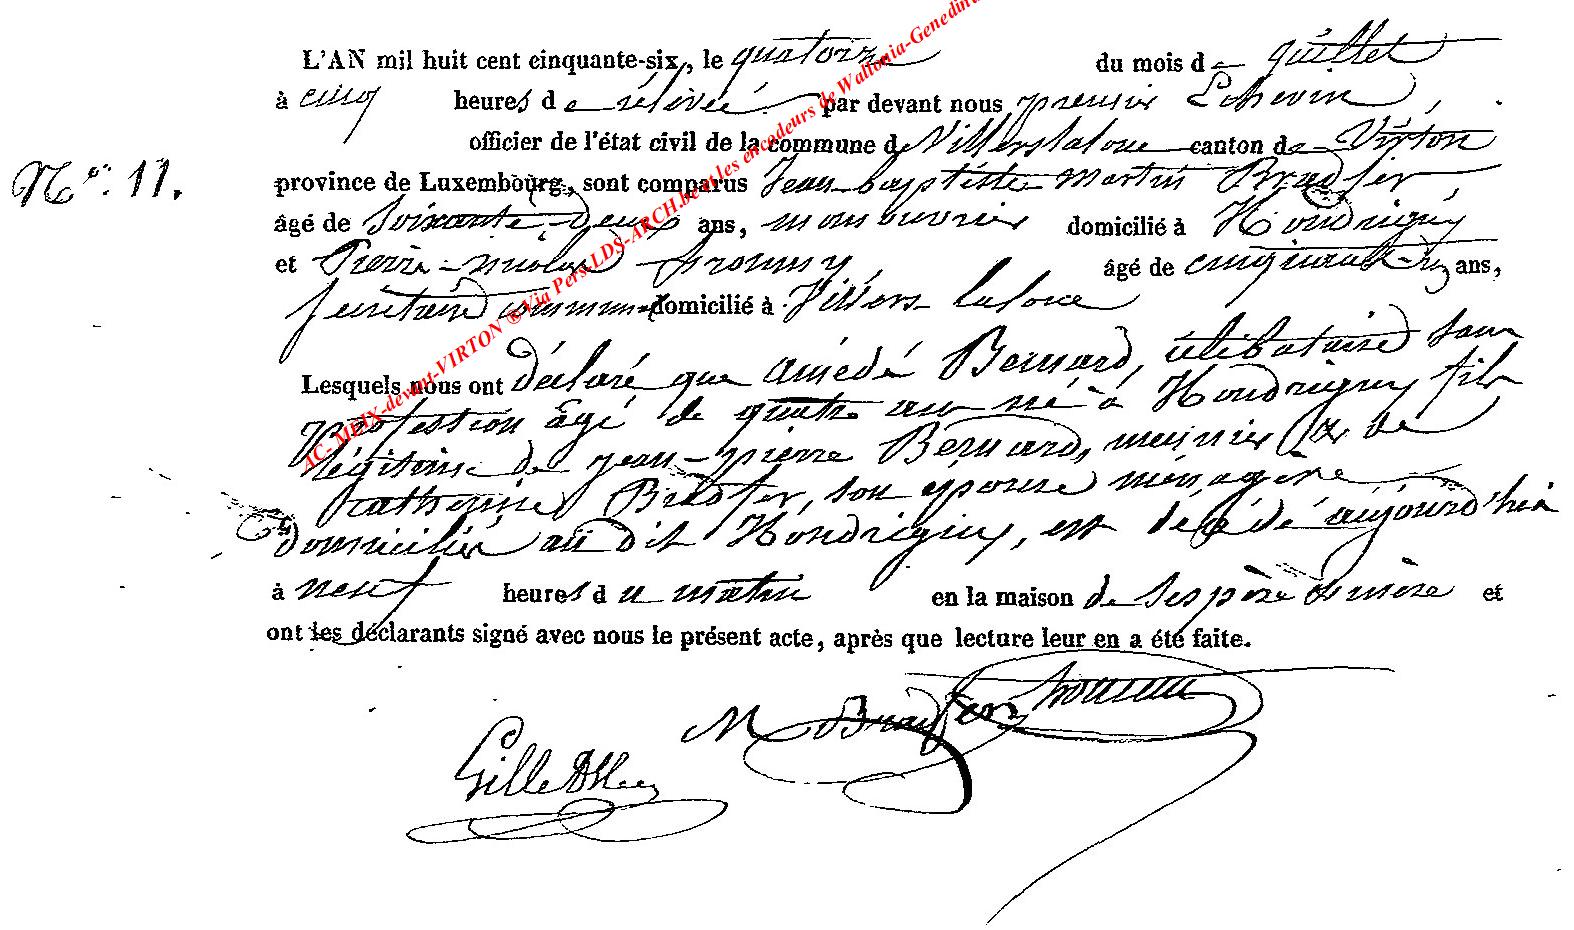 L'AN mil huit cent cinquante-six, le quatorze du mois de juillet
à cinq heures de rélevée par devant nous premier Echevin,
officier de l'état civil de la commune de Villerslaloue canton de Virton
N° 11.
province de Luxembourg, sont comparus Jean-baptiste martin Bradfer,
âgé de soixante-deux ans, manouvrier domicilié à Hondrigny
et Pierre-nicolas âgé de cinquante ans,
secrétaire communal domicilié à Villers-laloue
Lesquels nous ont déclaré que amédé Bernard, célibataire sans
profession âgé de quatre ans né à Hondrigny fils
légitime de jean-pierre Bernard, meunier & de
catherine Bradfer, son épouse ménagère
domiciliés au dit Hondrigny, est décédé aujourd'hui
à neuf heures du matin en la maison de ses père & mère et
ont les déclarants signé avec nous le présent acte, après que lecture leur en a été faite.
M Bradfer
Gille
AC. MEIX-devant-VIRTON ® Via Pers-LDS-ARCH.be et les encodeurs de Wallonia-Genedinru